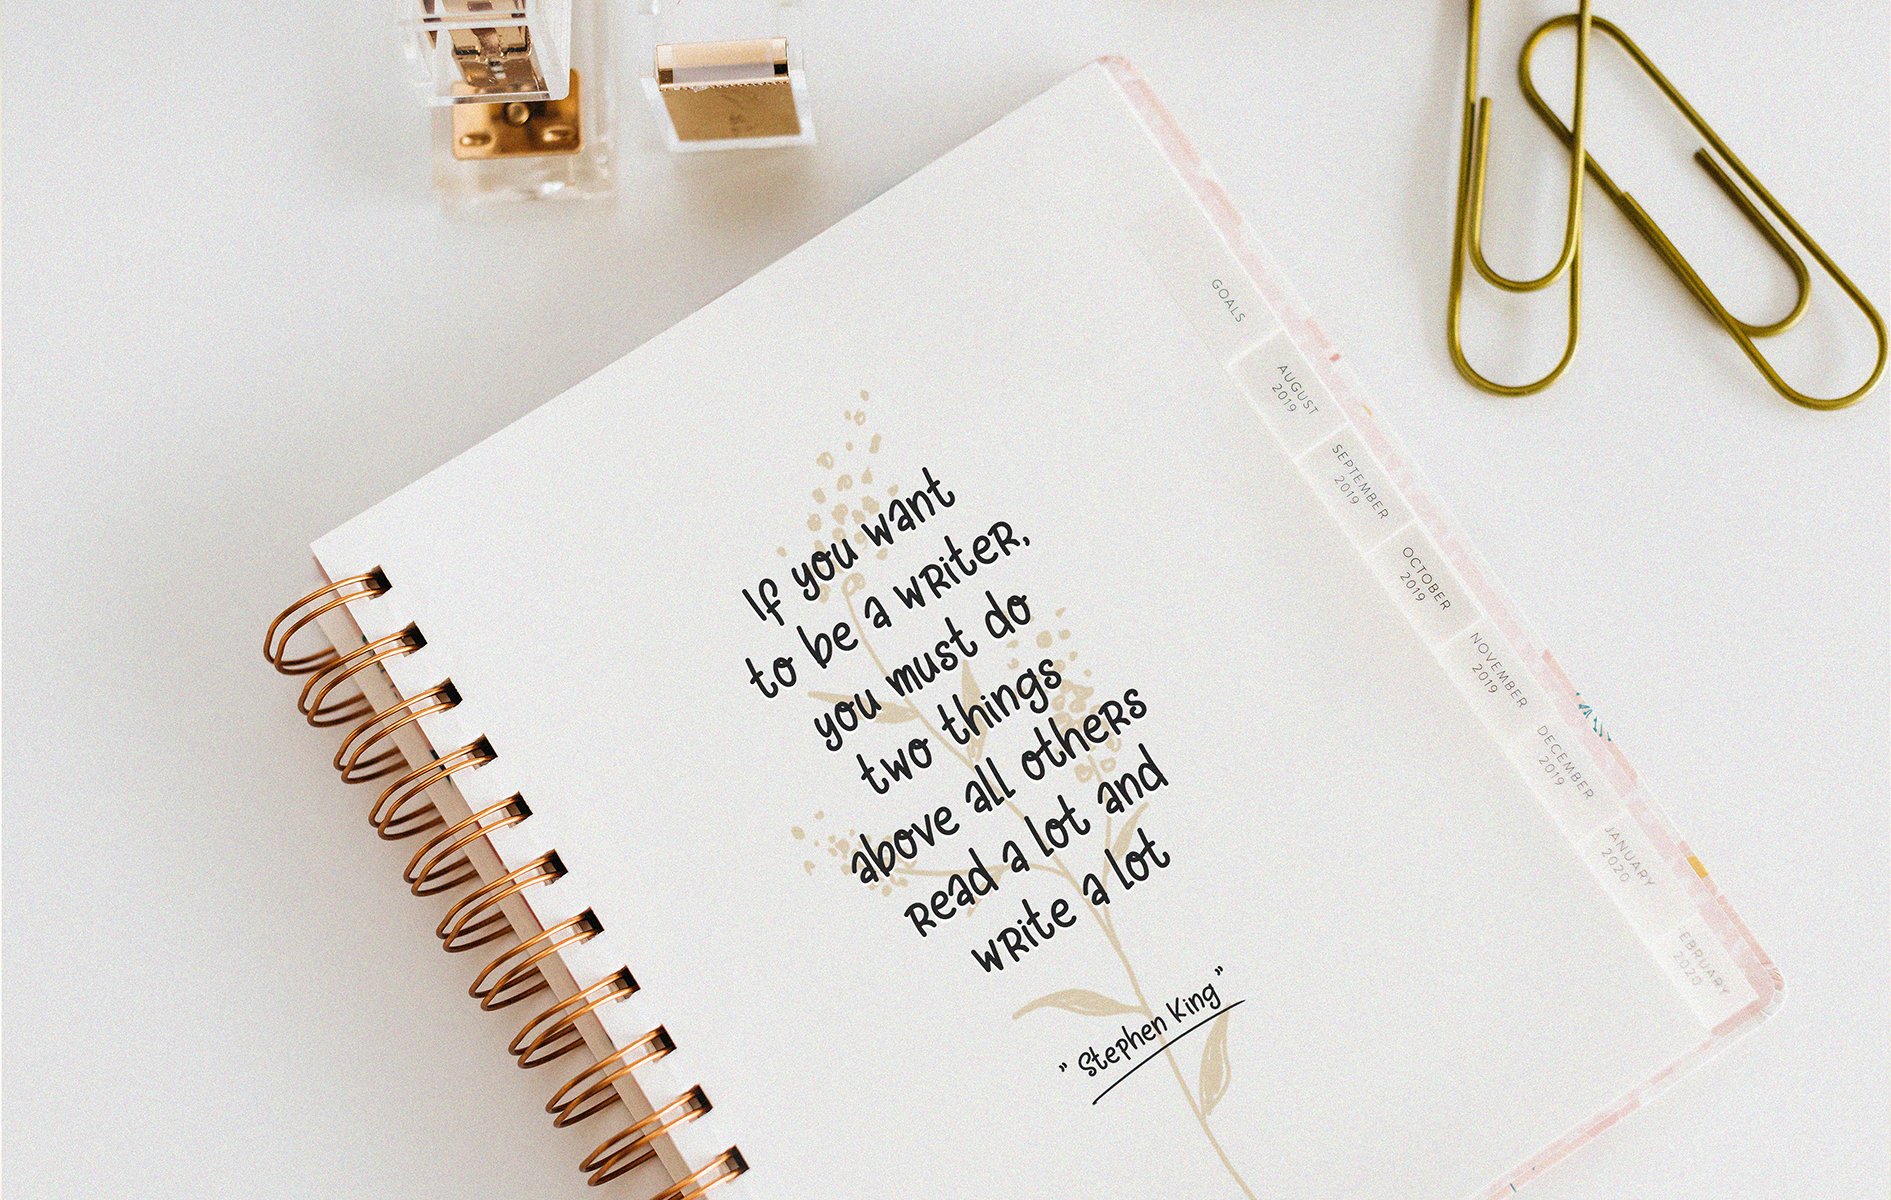 If you want
to be a writer,
you must do
two things
above all others
read a lot and
write a lot
" Stephen King "
GOALS
AUGUST
2019
SEPTEMBER
2019
OCTOBER
2019
NOVEMBER
2019
DECEMBER
2019
JANUARY
2020
EBRUARY
2020